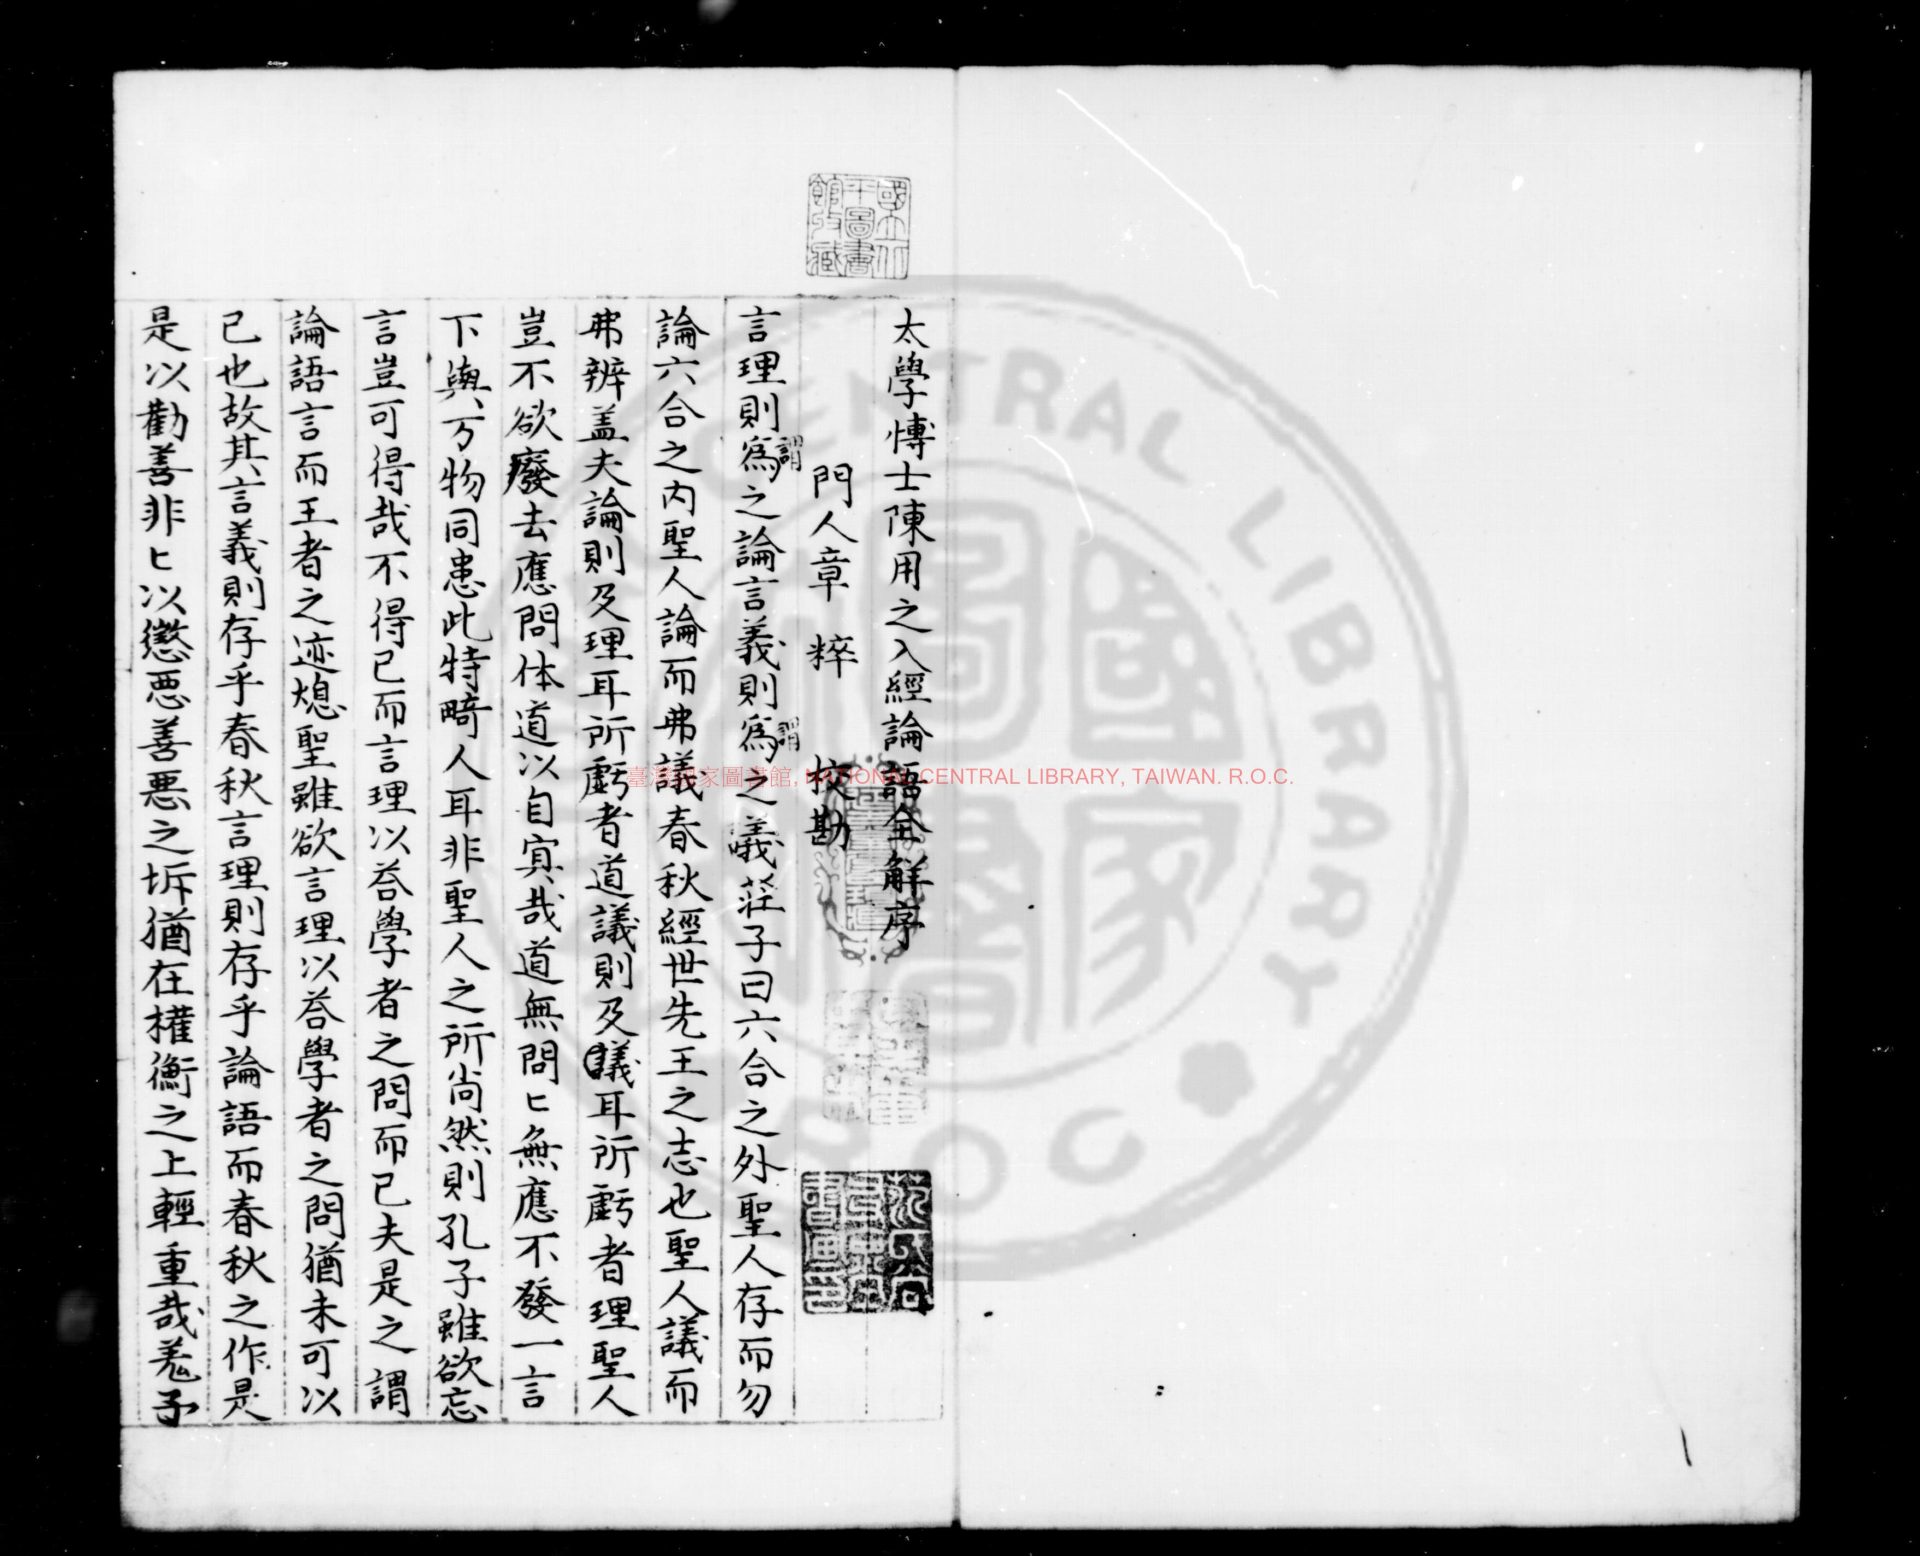 太學博士陳用之入經論語全解序
門人章粹校勘
言理則為謂之論言義則為謂之議莊子曰六合之外聖人存而勿
論六合之內聖人論而弗議春秋經世先王之志也聖人議而
弗辨盖夫論則及理耳所虧者道議則及議耳所虧者理聖人
豈不欲廢去應問体道以自冥哉道無問匕無應不發一言
下與万物同患此特畸人耳非聖人之所尚然則孔子雖欲忘
言豈可得哉不得已而言理以荅學者之問而已夫是之謂
論語言而王者之迹熄聖雖欲言理以荅學者之問猶未可以
已也故其言義則存乎春秋言理則存乎論語而春秋之作是
是以勸善非匕以懲惡善惡之坼猶在權衡之上輕重哉羗予
國立北平圖書館收藏
臺灣國家圖書館, NATIONAL CENTRAL LIBRARY, TAIWAN. R.O.C.
CENTRAL LIBRARY
R.O.C.
國家圖書